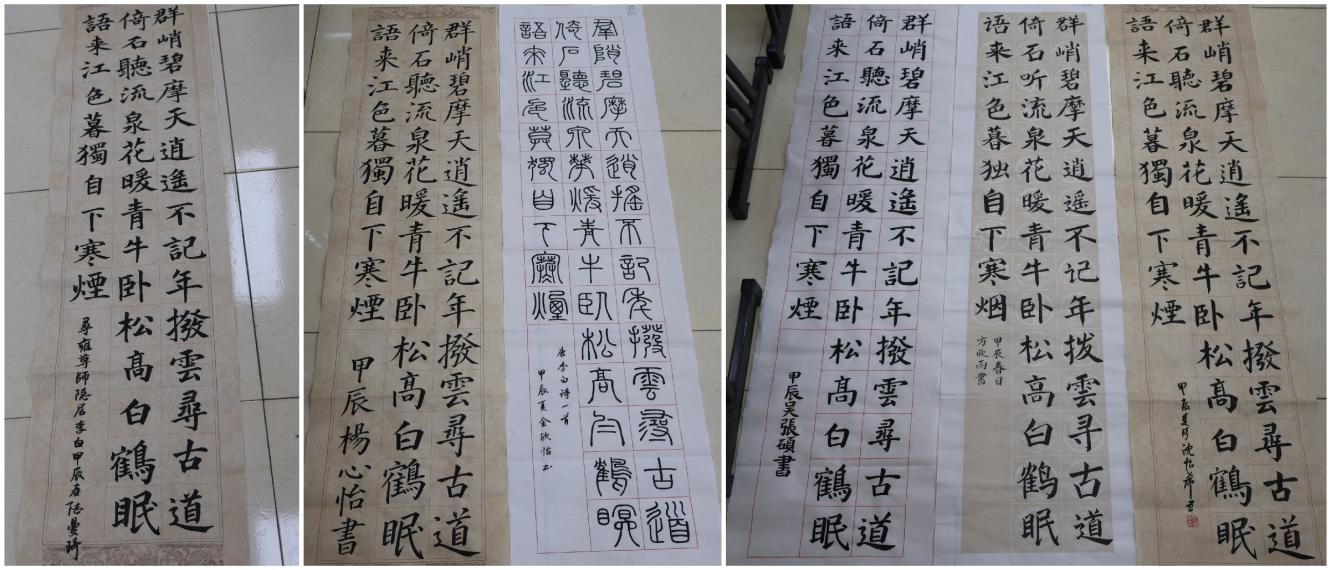 群峭碧摩天逍遙不記年撥雲尋古道
倚石聽流泉花暖青牛卧松髙白鶴眠
語来江色暮獨自下寒煙
尋雍尊師隱居李白甲辰春陸曼琦
群峭碧摩天逍遙不記年撥雲尋古道
倚石聽流泉花暖青牛卧松髙白鶴眠
語来江色暮獨自下寒煙
甲辰楊心怡書
羣峭碧摩天逍遙不記年撥雲尋古道
倚石聽流泉華煖青牛臥松高白鶴瞑
語来江色莫獨自下寒煙
唐李白诗一首
甲辰夏金欣怡书
群峭碧摩天逍遙不記年撥雲尋古道
倚石聽流泉花暖青牛卧松髙白鶴眠
語来江色暮獨自下寒煙
甲辰吴張碩書
群峭碧摩天逍遥不记年拨雲寻古道
倚石听流泉花暖青牛卧松高白鹤眠
语来江色暮独自下寒烟
甲辰春日
方欣雨書
群峭碧摩天逍遙不記年撥雲尋古道
倚石聽流泉花暖青牛卧松髙白鶴眠
語来江色暮獨自下寒煙
甲辰夏月沈怡希书